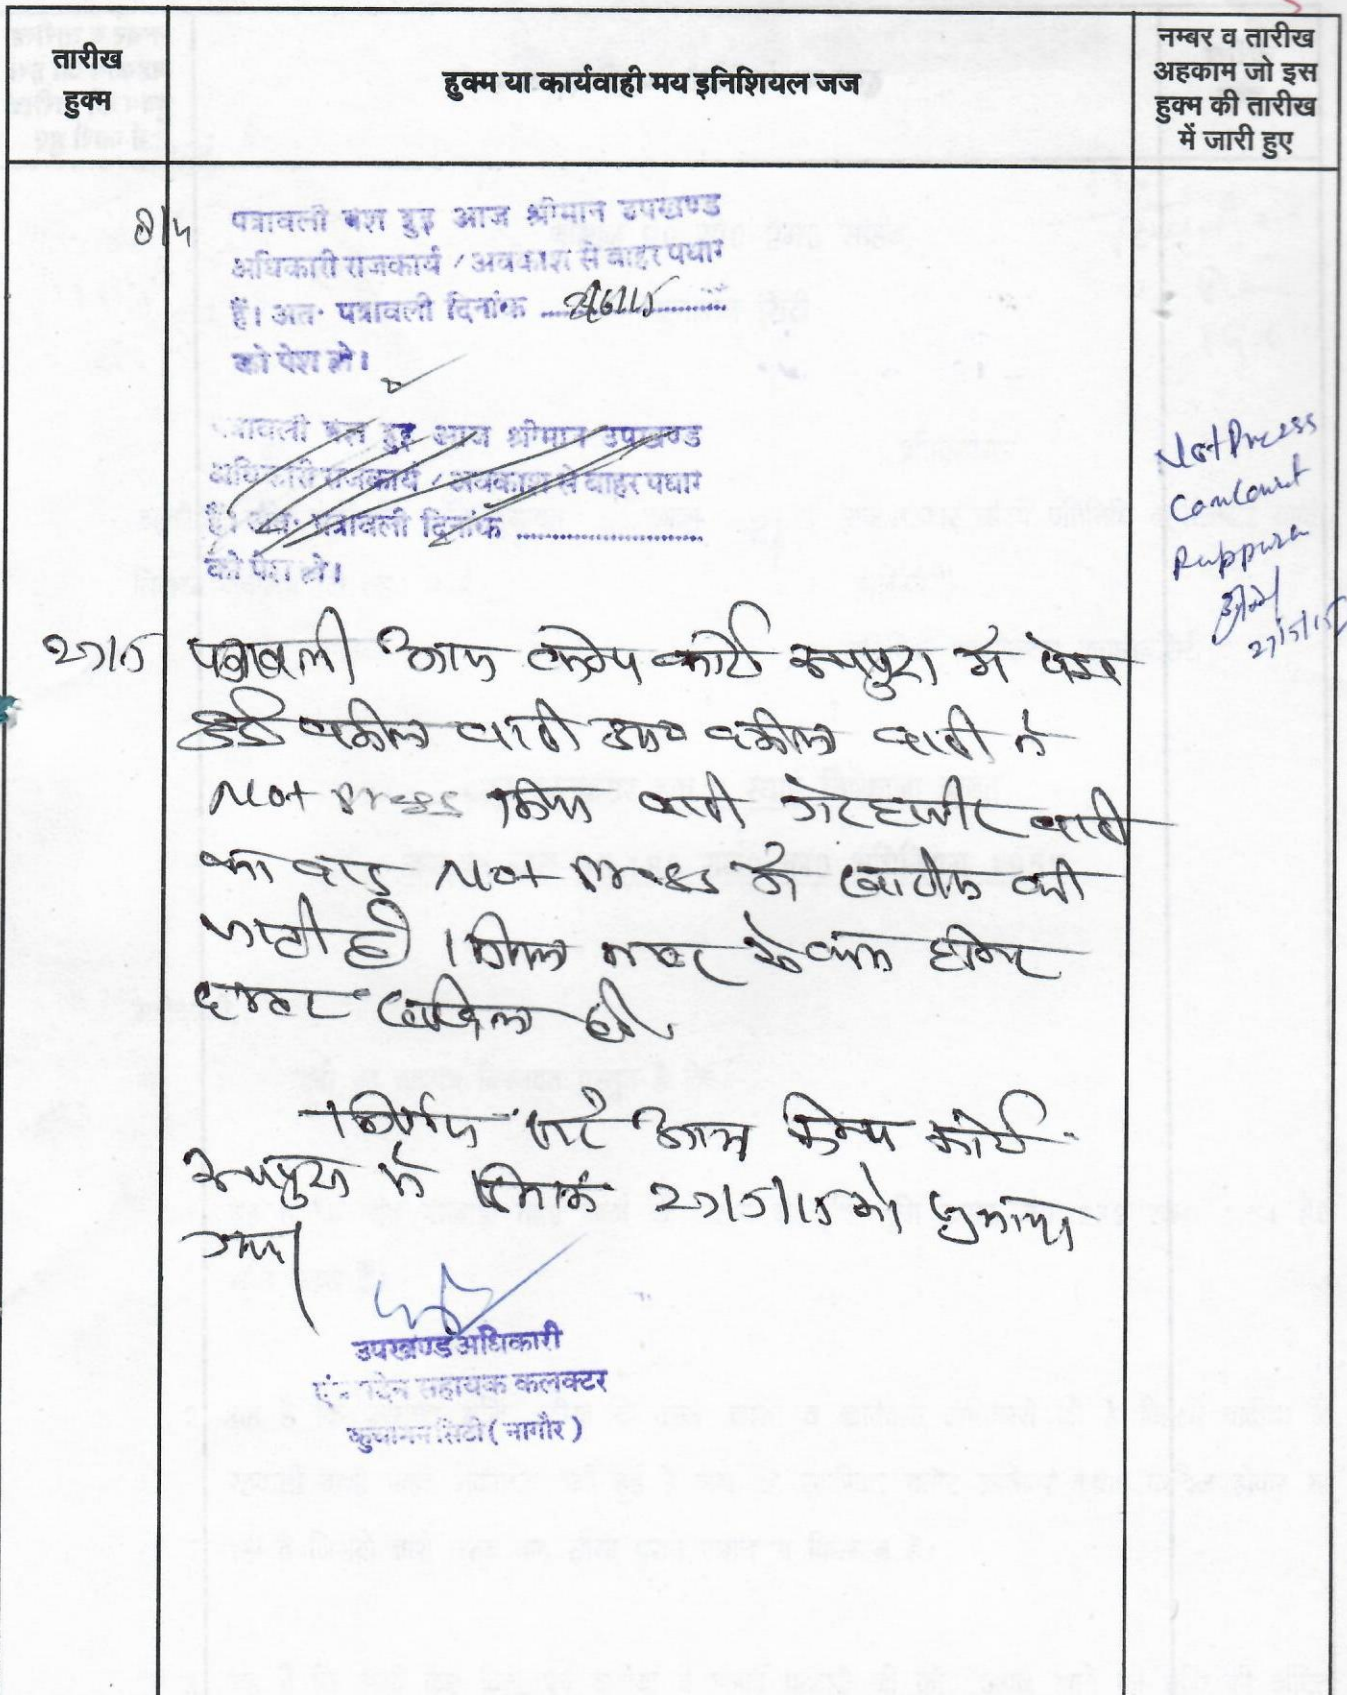 तारीख
हुक्म
हुक्म या कार्यवाही मय इनिशियल जज
नम्बर व तारीख
अहकाम जो इस
हुक्म की तारीख
में जारी हुए
8/4
पत्रावली पेश हुइ आज श्रीमान उपखण्ड
अधिकारी राजकार्य / अवकाश से बाहर पधार
हैं। अतः पत्रावली दिनांक
को पेश हो।
पत्रावली पेश हुइ आज श्रीमान उपखण्ड
अधिकारी राजकार्य / अवकाश से बाहर पधार
हैं। अतः पत्रावली दिनांक ..............................
को पेश हो।
Not Press
Ruppura
27/5/15
27/5 पत्रावली आज केम्प कोर्ट रूपपुरा में पेश
हुई वकील वादी उप० वकील वादी ने
Not Press किया वादी गेरहाजीर वादी
का वाद Not Press में खारीज की
जाती है। फैसल होकर
दफ्तर दाखिल हो
निर्णय आज केम्प कोर्ट
रूपपुरा में दिनांक 27/5/15 को सुनाया
गया।
उपखण्ड अधिकारी
एवं पदेन सहायक कलक्टर
कुचामन सिटी (नागौर)